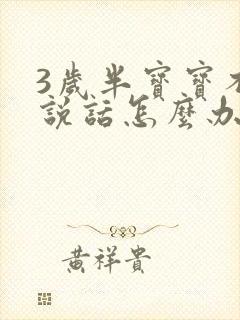 3歲半寶寶不
說話怎麼办
黃祥貴